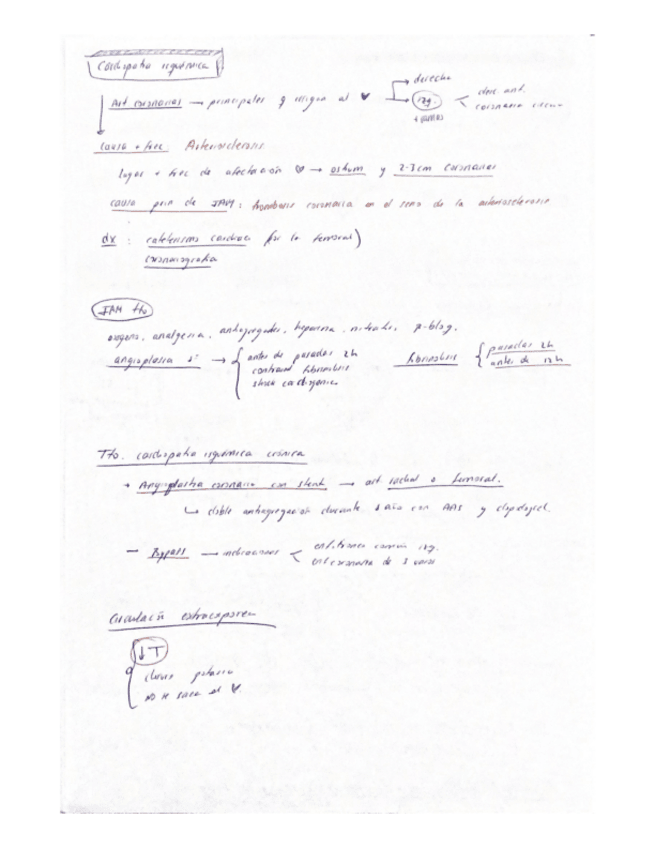 Cardiopatía isquémica
Art coronarias → principales q irrigan al ♥ → derecha
izq. < desc. ant.
coronaria circun
causa + frec. Arteriosclerosis
lugar + frec de afectación ♥ → ostium y 2-3 cm coronarias
causa prin de IAM: trombosis coronaria en el seno de la arteriosclerosis
dx: cateterismo cardiaco (por la femoral)
coronariografía
IAM tto
oxígeno, analgesia, antiagregantes, heparina, nitratos, β-bloq.
angioplastia → { antes de pasadas 2h
contraind fibrinolisis
shock cardiogénico
fibrinolisis { pasadas 2h
antes de 12h
Tto. cardiopatía isquémica crónica
→ Angioplastia coronaria con stent → art radial o femoral.
↳ doble antiagregación durante 1 año con AAS y clopidogrel.
— Bypass → indicaciones < enf. tronco común izq.
enf coronaria de 3 vasos
Circulación extracorpórea
↓T
cloruro potasio
no se saca el ♥.